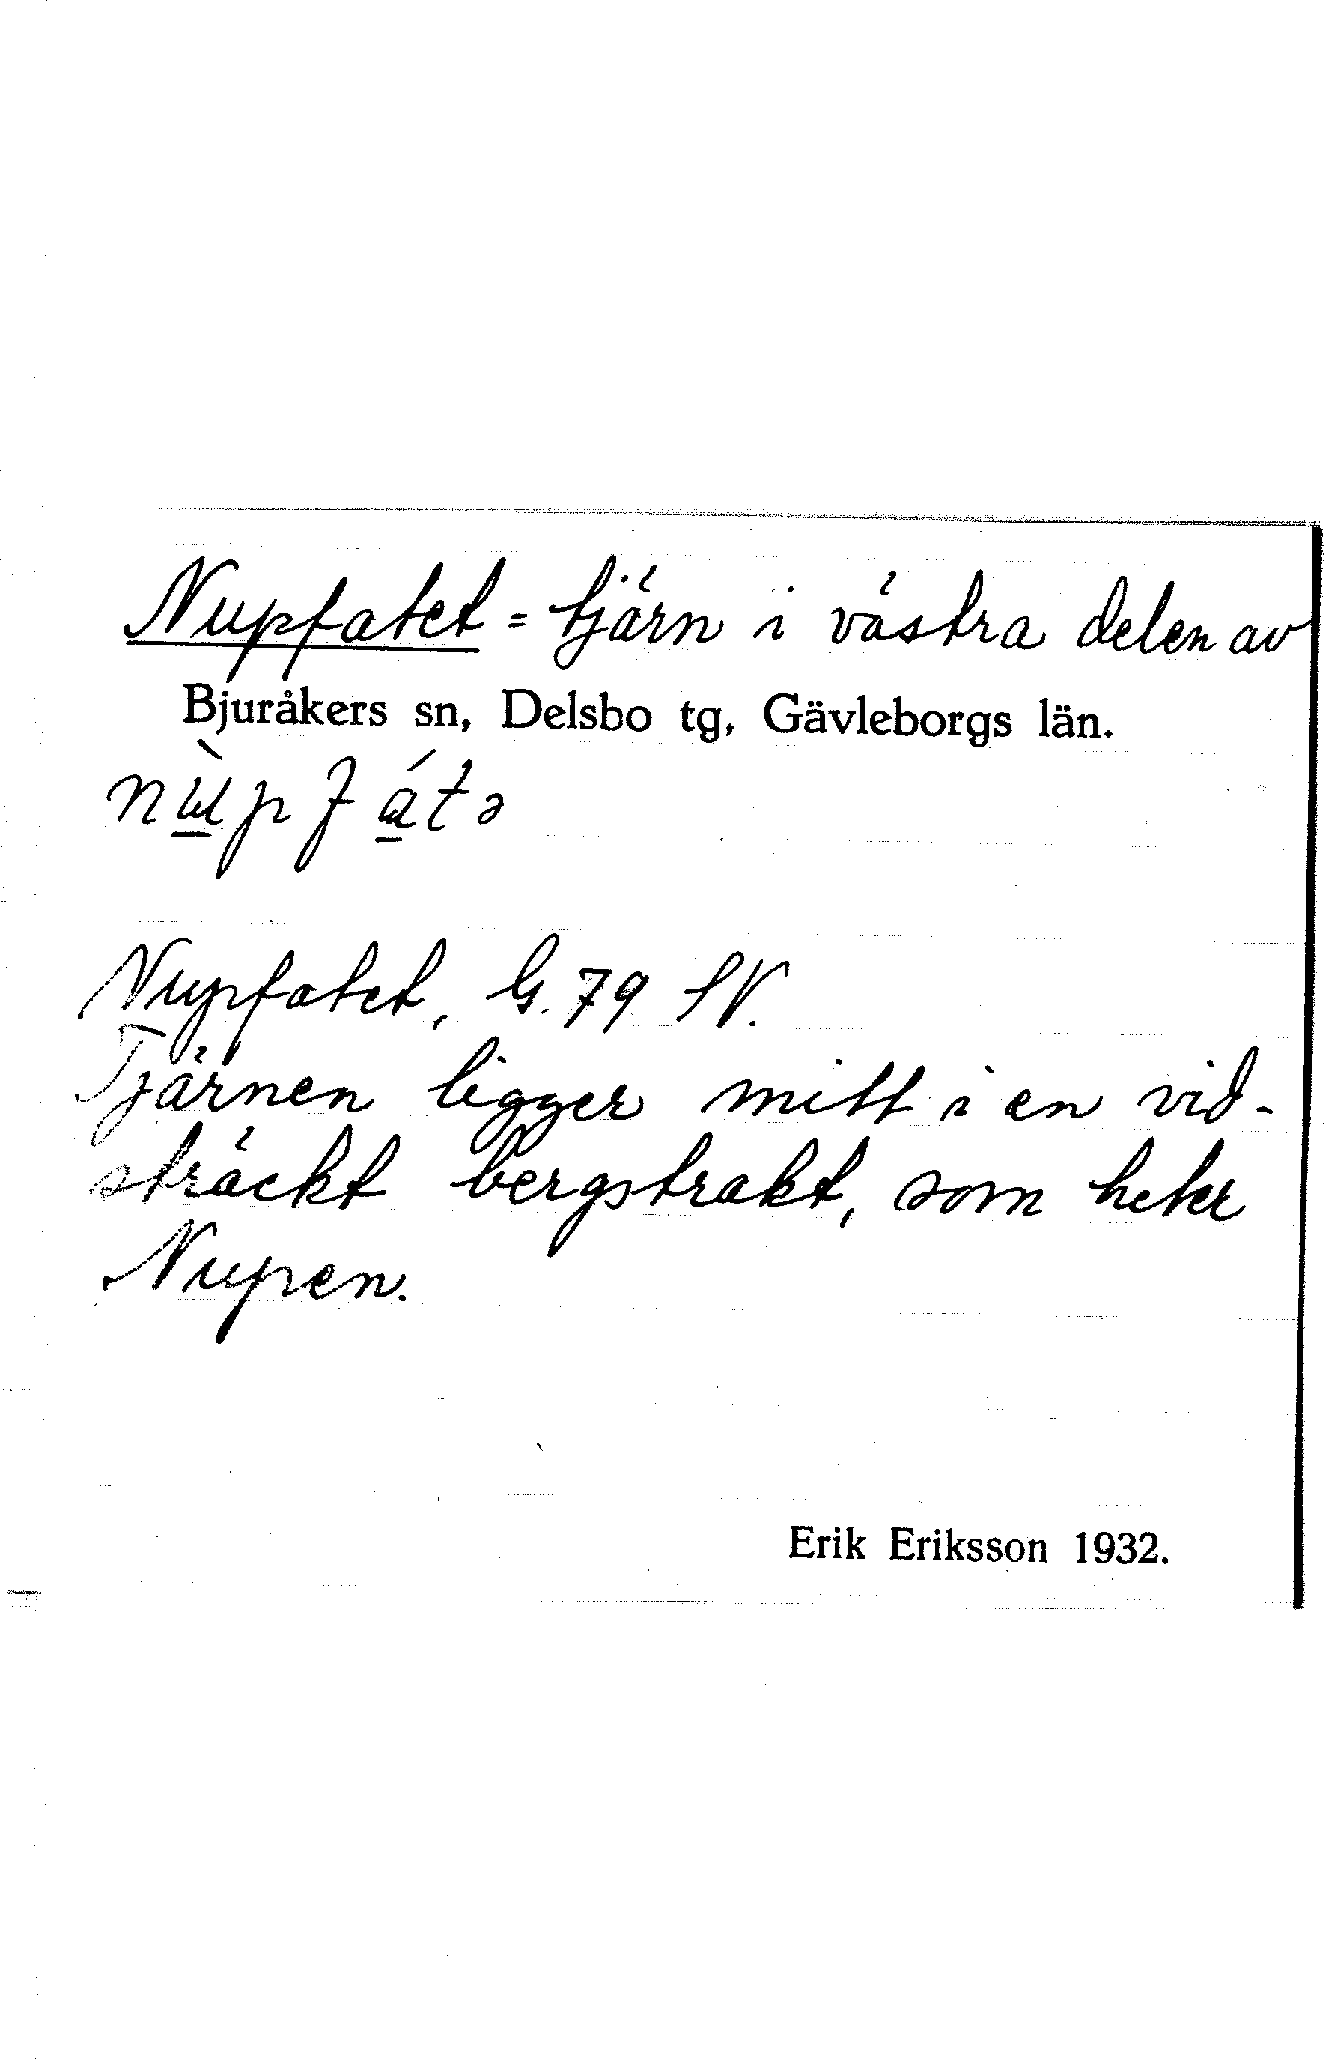 Nupfatet = tjärn i västra delen av
Bjuråkers sn, Delsbo tg, Gävleborgs län.
nɯ̀pfátə
Nupfatet, G. 79 SV.
Tjärnen ligger mitt i en vid-
sträckt bergstrakt, som heter
Nupen.
Erik Eriksson 1932.